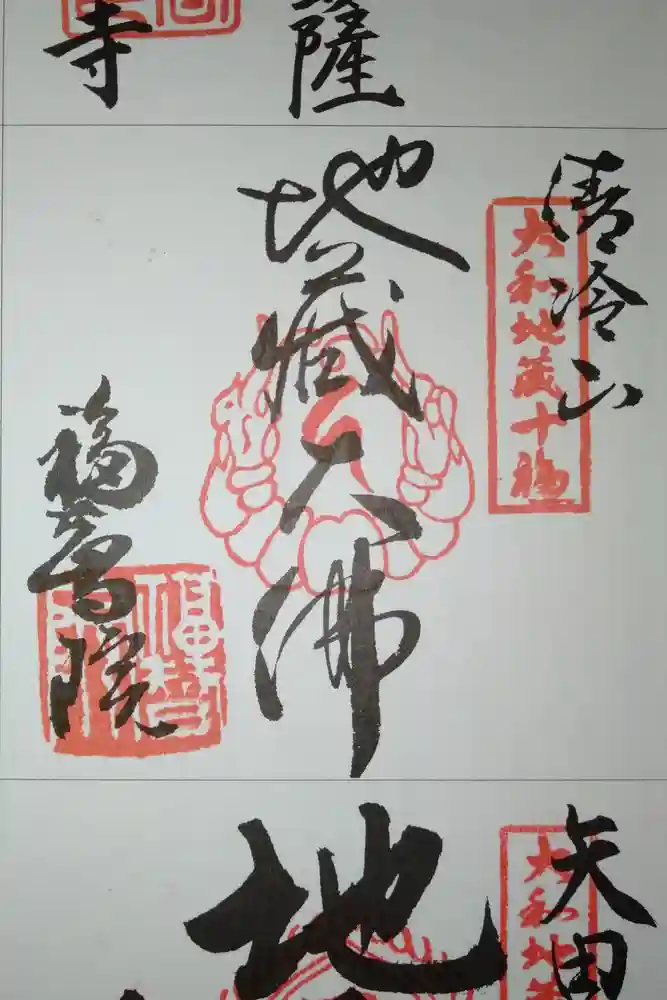 薩
寺
清冷山
大和地蔵十福
地蔵大佛
福寿院
矢田
大和地蔵
地